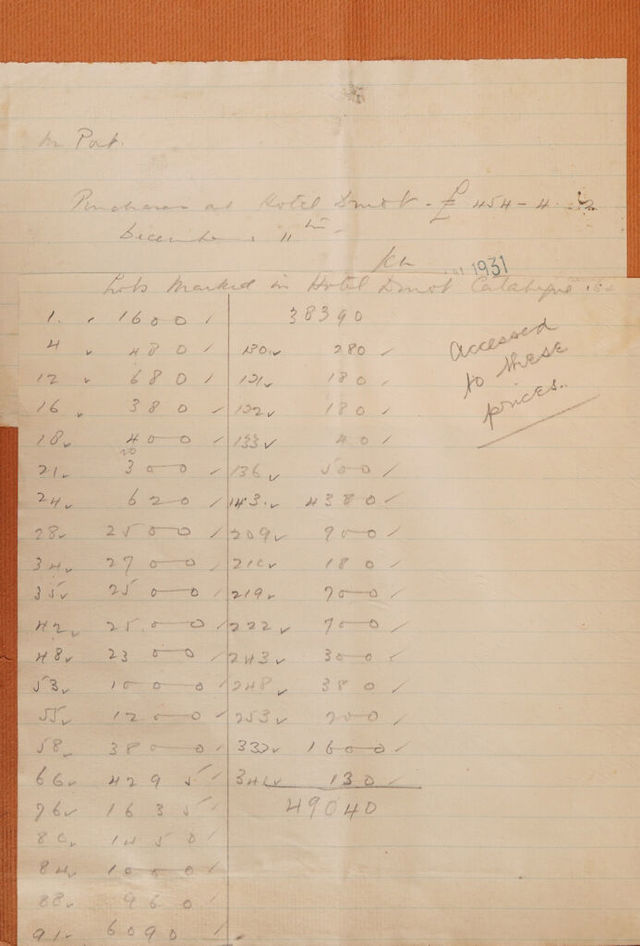 Mr Port.
Purchases at Hotel Drouot - £ 454 - 4
December 11th -
1931
Lots Marked in Hotel Drouot Catalogue
1. 1600 / 38390
4 ✓ 480 / 130 ✓ 280 /
12 ✓ 680 / 131 ✓ 180 /
16 ✓ 380 / 132 ✓ 180 /
18 ✓ 400 / 133 ✓ 40 /
21 ✓ 300 / 136 ✓ 500 /
24 ✓ 620 / 143 ✓ 4380 /
28 ✓ 2500 / 209 ✓ 900 /
34 ✓ 2700 / 180 /
35 ✓ 2500 / 219 ✓ 700 /
42 ✓ 2500 / 222 ✓ 700 /
48 ✓ 2300 / 243 ✓ 300 /
53 ✓ 1000 / 248 ✓ 380 /
55 ✓ 1200 / 253 ✓ 200 /
58 ✓ 3800 / 332 ✓ 1600 /
66 ✓ 4295 / 130 /
76 ✓ 1635 / 49040
80 ✓ 1450 /
84 ✓ 1000 /
88 ✓ 960 /
91 ✓ 6090 /
Accessed
to these
prices.